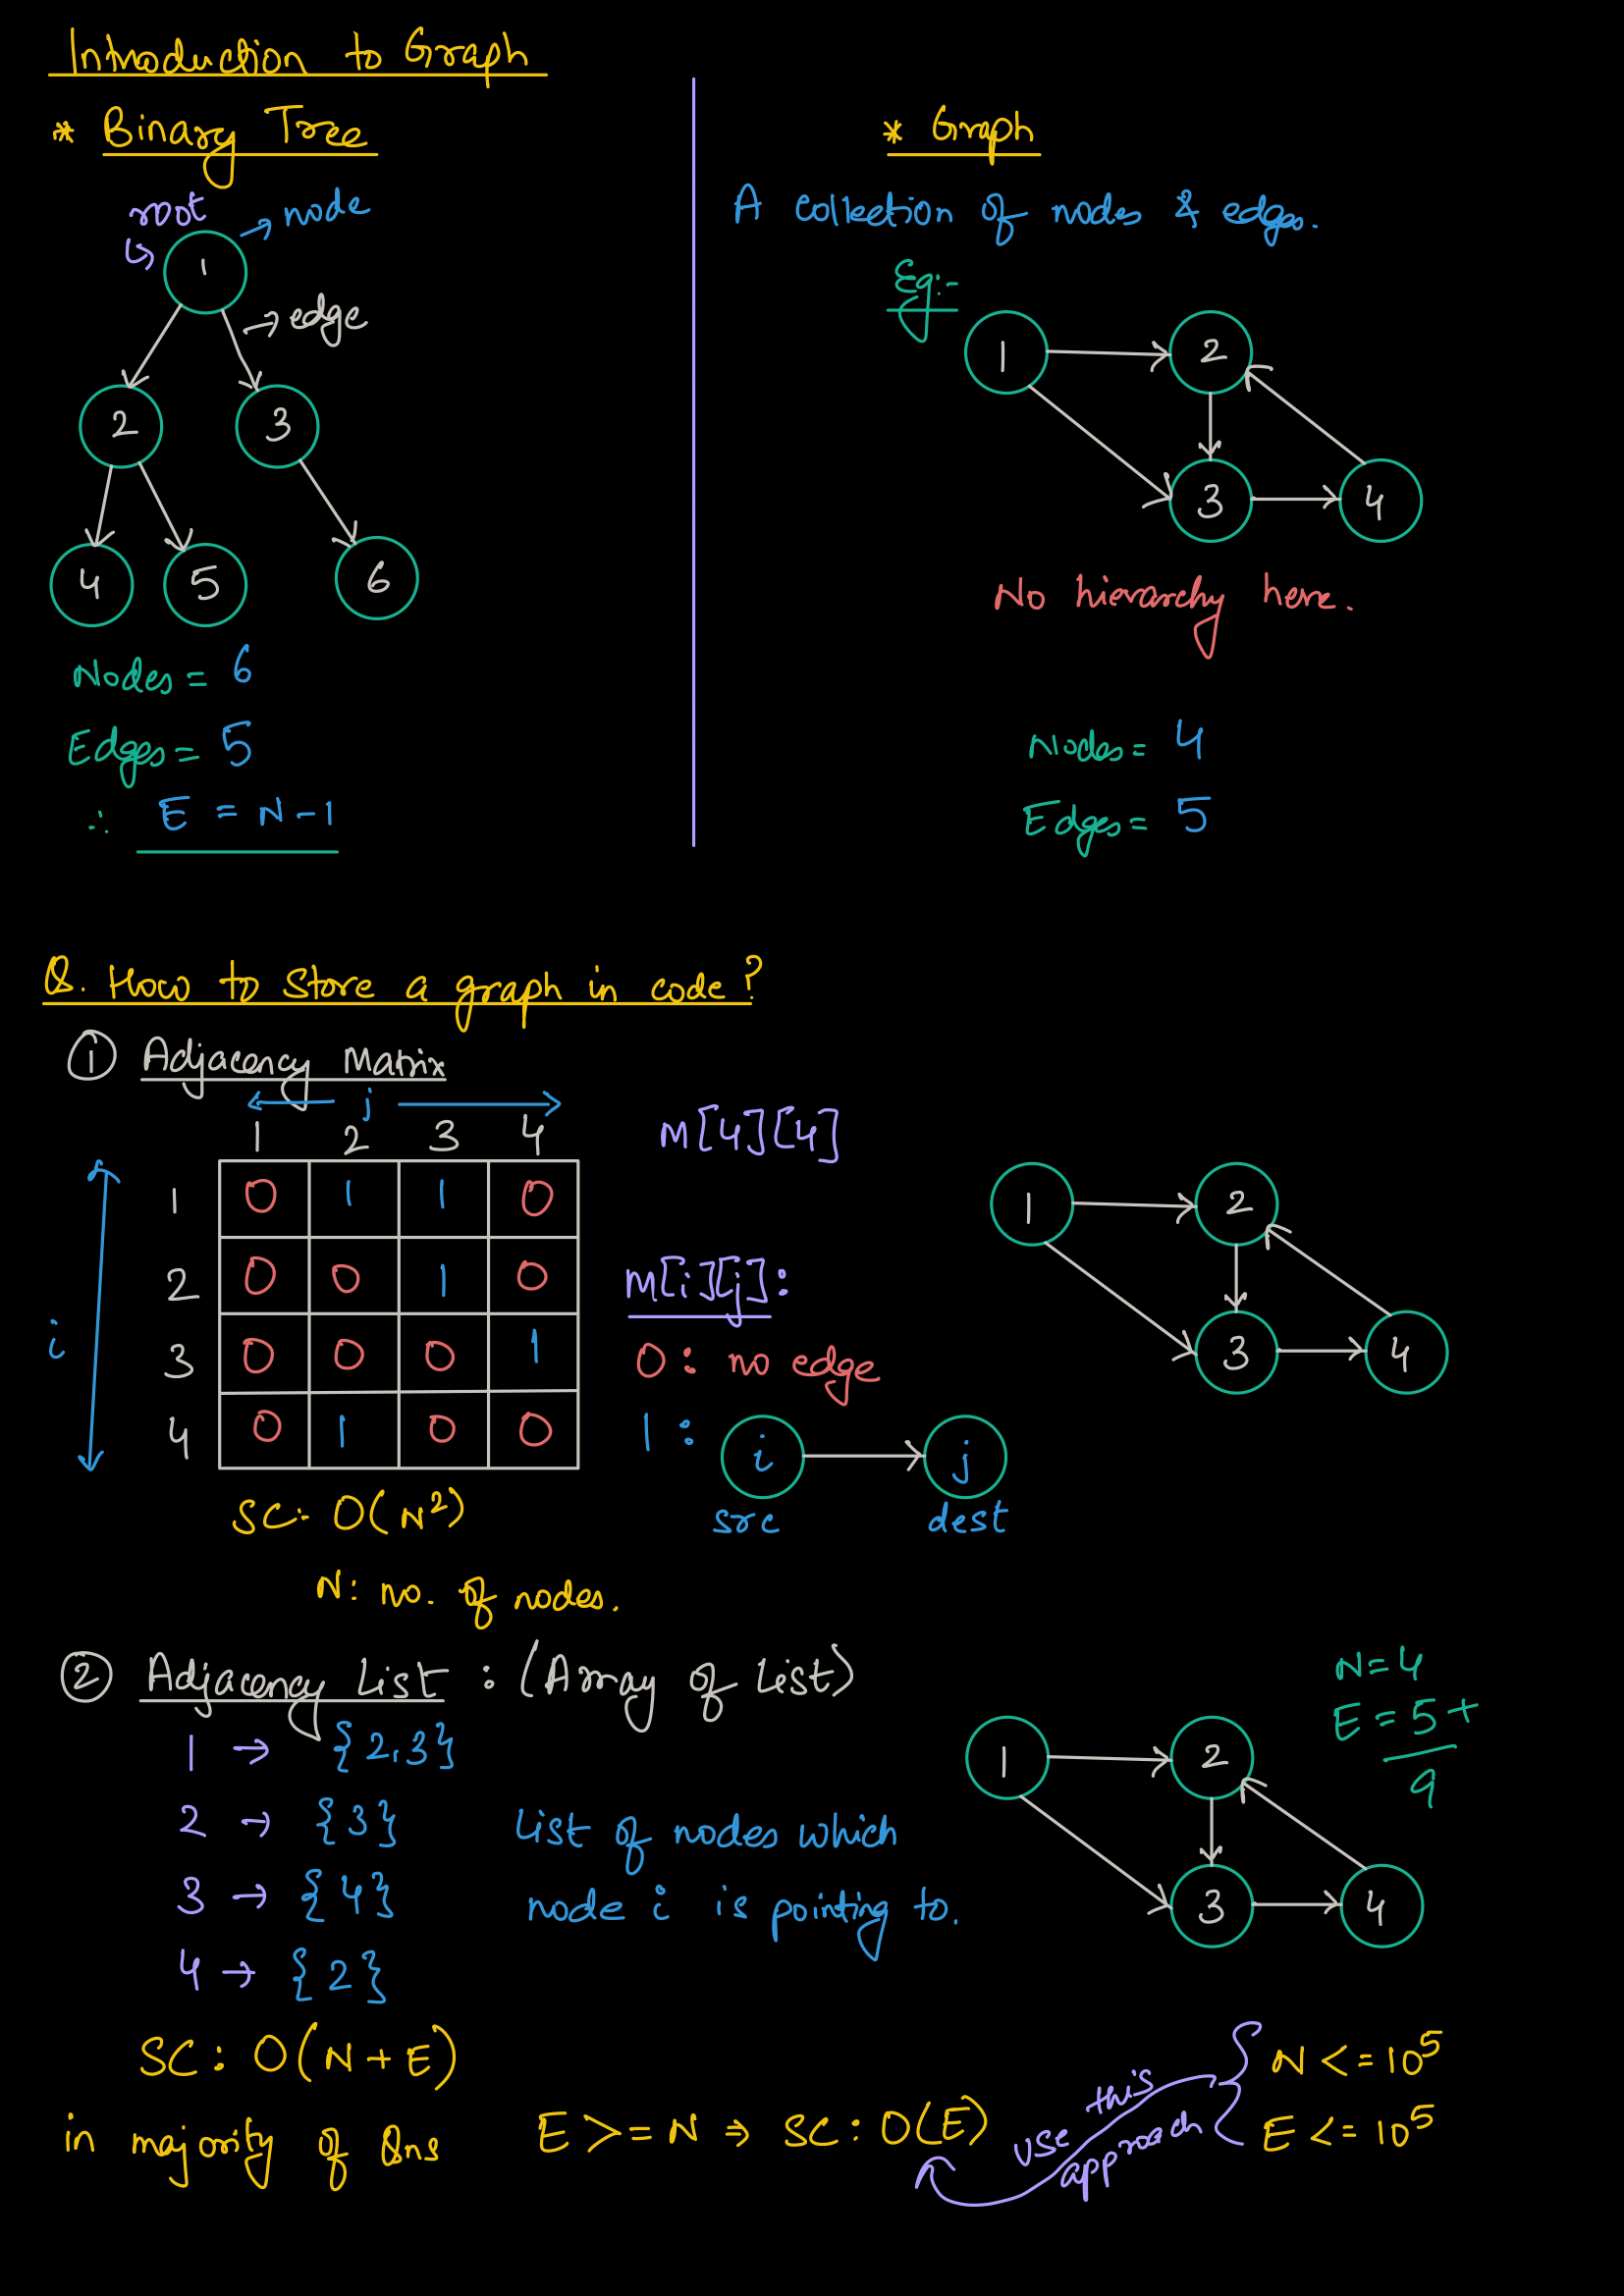 Introduction to Graph
* Binary Tree
root
node
1
edge
2 3
4 5 6
Nodes = 6
Edges = 5
∴ E = N - 1
* Graph
A collection of nodes & edges.
Eg:-
1 2
3 4
No hierarchy here.
Nodes = 4
Edges = 5
Q. How to store a graph in code?
① Adjacency Matrix
j
1 2 3 4
i
1 0 1 1 0
2 0 0 1 0
3 0 0 0 1
4 0 1 0 0
SC:- O(N²)
N: no. of nodes.
M[4][4]
M[i][j]:
0: no edge
1: i → j
src dest
1 2
3 4
② Adjacency List : (Array of List)
1 → {2,3}
2 → {3}
3 → {4}
4 → {2}
List of nodes which
node i is pointing to.
N=4
E = 5 +
9
1 2
3 4
SC: O(N + E)
in majority of Qns E >= N ⇒ SC: O(E)
use this
approach
N <= 10⁵
E <= 10⁵